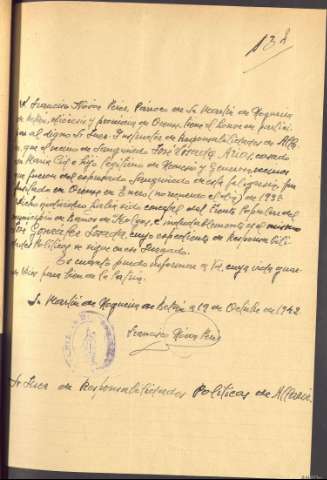 138
D. Francisco Nóvoa Pérez, Párroco de Sn Martín de Nogueira
de Betán, diócesis y provincia de Orense, tiene el honor de partici-
par al digno Sr Juez Instructor de Responsabilidades de Alla-
riz, que el vecino de Junquido José Losada Arias, casado
con María Cid e hijo legítimo de Horacio y Generosa, vecinos
que fueron del expresado Junquido de esta feligresía, fue
en Orense en Enero (no recuerdo el día) de 193
Dicho que había sido concejal del Frente Popular del
municipio de Baños de Molgas, e indudablemente es el mismo
José González Losada, cuyo expediente de Responsabili-
dades Políticas se sigue en ese Juzgado.
Es cuanto puedo informar a Vd, cuya vida guar-
de Dios para bien de la Patria.
Sn Martín de Nogueira de Betán a 19 de Octubre de 1942
Francisco Nóvoa Pérez
Sr Juez de Responsabilidades Políticas de Allariz.